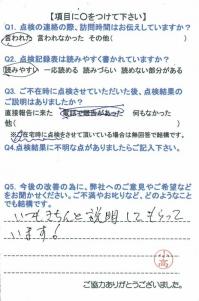 【項目に○をつけて下さい】
Q1. 点検の連絡の際、訪問時間はお伝えしていますか？
言われた 言われなかった その他( )
Q2. 点検記録表は読みやすく書かれていますか？
読みやすい 一応読める 読みづらい 読めない部分がある
Q3. ご不在時に点検させていただいた後、点検結果の
ご説明はありましたか？
直接報告に来た 電話で報告があった 何もなかった
他( )
※ご在宅時に点検をさせて頂いている場合は無回答で結構です。
Q4. 点検結果に不明な点がありましたらご記入下さい。
Q5. 今後の改善の為に、弊社へのご意見やご希望などを
お聞かせください。ご不満やお叱りなど、どのようなこと
でも結構です。
いつもきちんと説明してもらって
います！
小高
ご協力ありがとうございました。